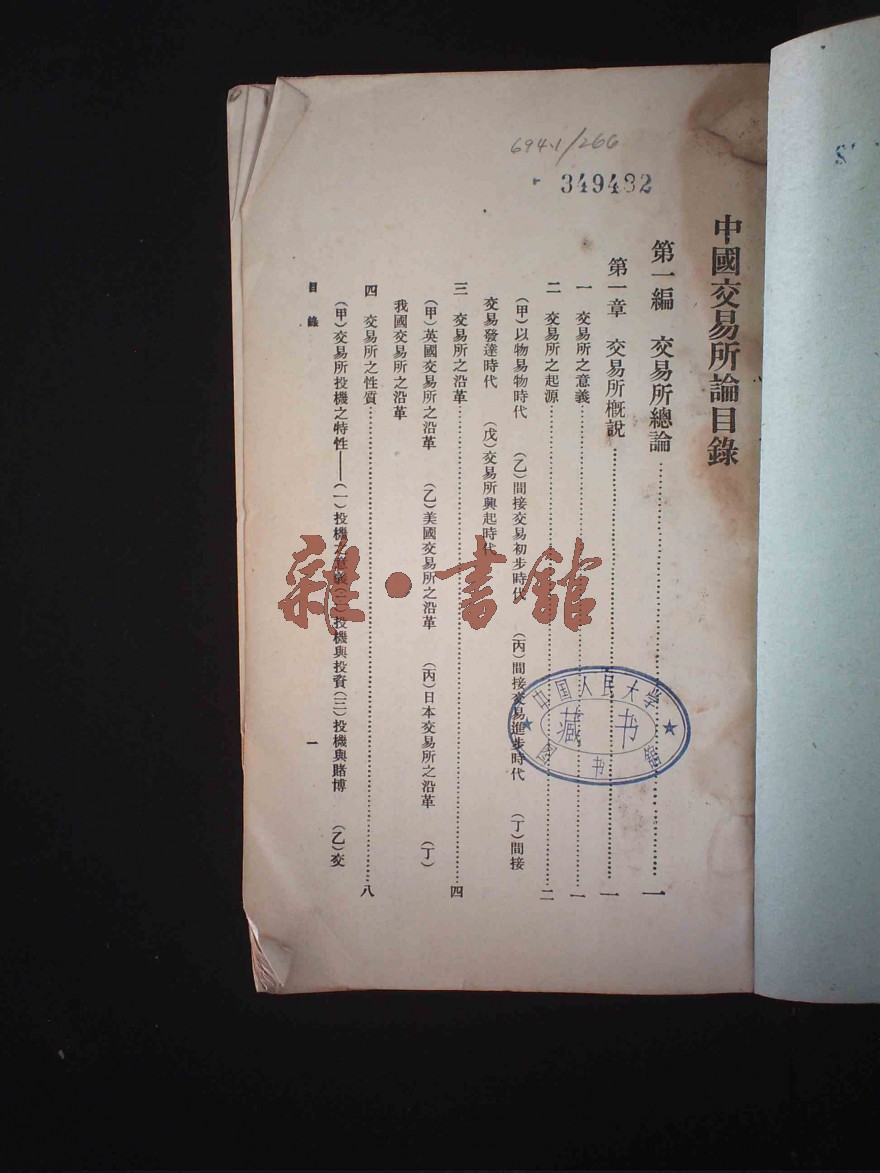 694.1/266
349432
中國交易所論目錄
第一編　交易所總論……一
第一章　交易所概說……一
一　交易所之意義……一
二　交易所之起源……二
（甲）以物易物時代　（乙）間接交易初步時代　（丙）間接交易進步時代　（丁）間接
交易發達時代　（戊）交易所興起時代
三　交易所之沿革……四
（甲）英國交易所之沿革　（乙）美國交易所之沿革　（丙）日本交易所之沿革　（丁）
我國交易所之沿革
四　交易所之性質……八
（甲）交易所投機之特性——（一）投機之意義（二）投機與投資（三）投機與賭博　（乙）交
目錄　一
中国人民大学
藏书
图书馆
雜·書館